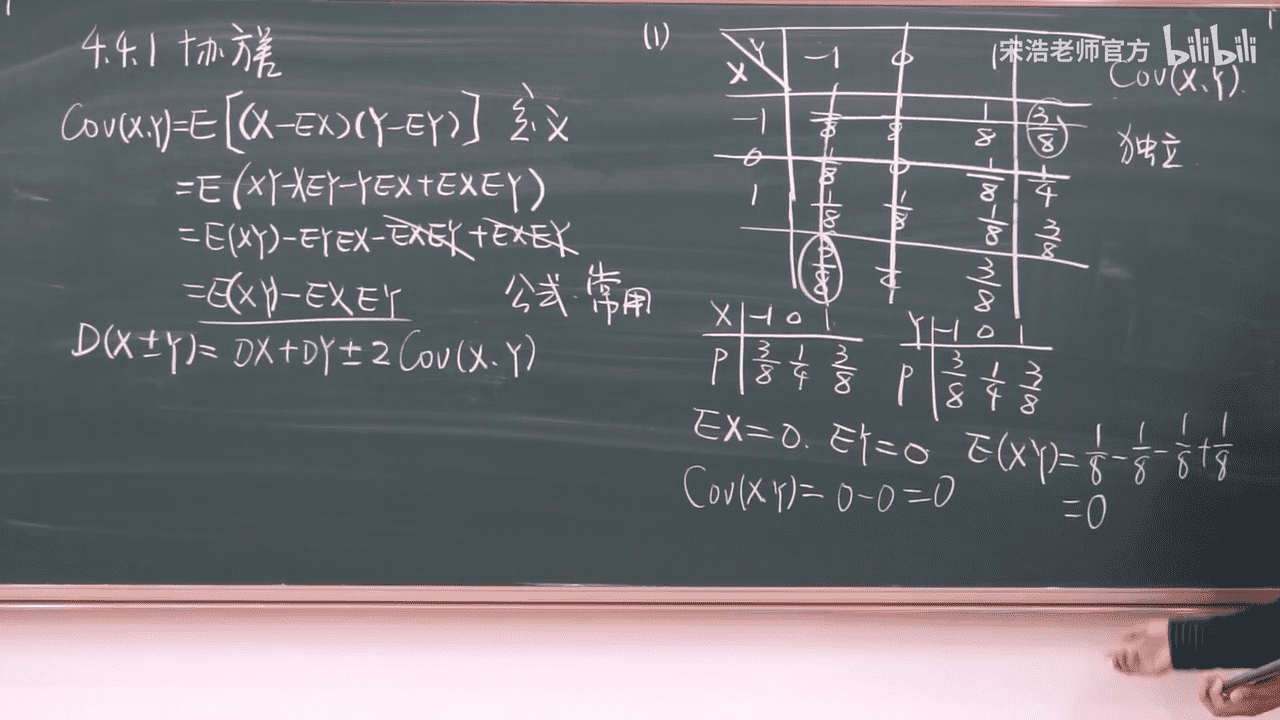 4.4.1 协方差
Cov(X,Y)=E[(X-EX)(Y-EY)] 定义
=E(XY-XEY-YEX+EXEY)
=E(XY)-EYEX-EXEY+EXEY
=E(XY)-EXEY 公式.常用
D(X±Y)= DX+DY±2Cov(X,Y)
(1)
Y -1 0 1
X
-1 1/8 1/8 1/8 3/8
0 1/8 0 1/8 1/4
1 1/8 1/8 1/8 3/8
3/8 3/8
宋浩老师官方 bilibili
Cov(X,Y).
独立
X -1 0 1
P 3/8 1/4 3/8
Y -1 0 1
P 3/8 1/4 3/8
EX=0. EY=0 E(XY)=1/8-1/8-1/8+1/8
=0
Cov(XY)=0-0=0